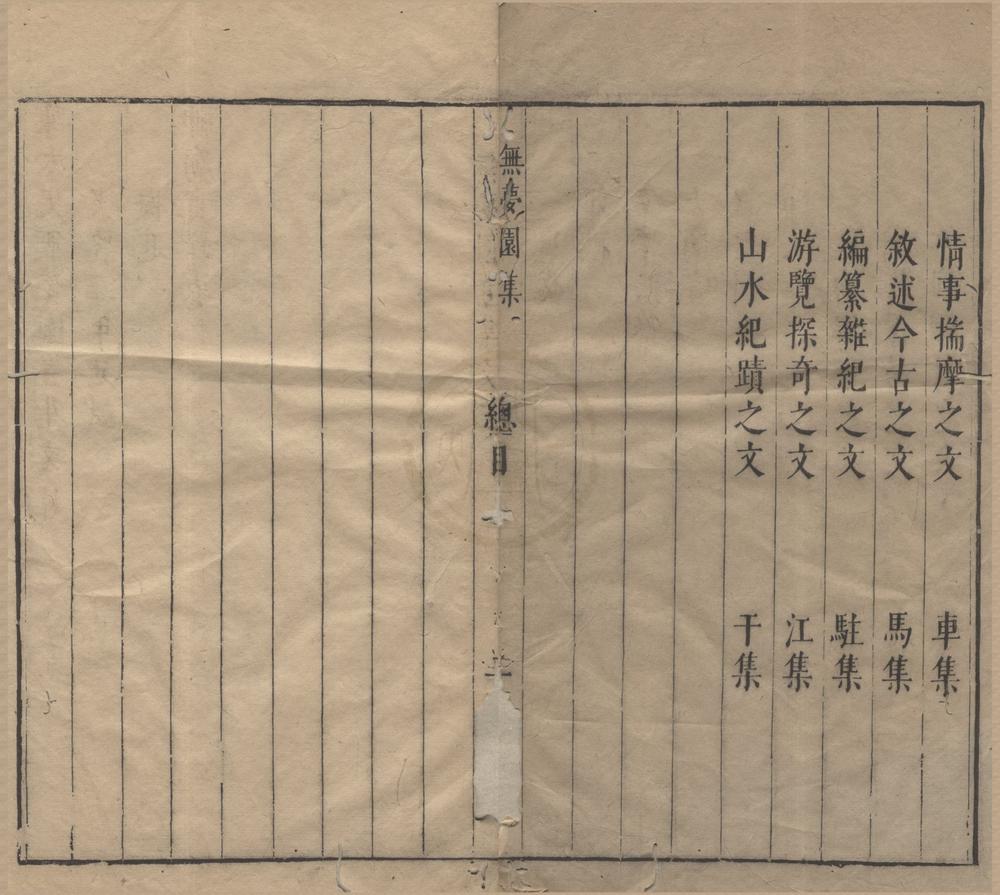 情事揣摩之文　車集
敘述今古之文　馬集
編纂雜紀之文　駐集
游覽探奇之文　江集
山水紀蹟之文　干集
無夢園集　總目